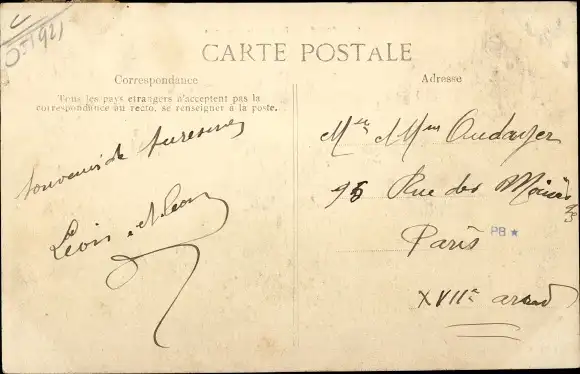 CARTE POSTALE
Correspondance
Tous les pays étrangers n'acceptent pas la
correspondance au recto, se renseigner à la poste.
Souvenir de Suresnes
Adresse
Mr Mme Oudayer
Rue des Moines
Paris
PB ★
XVIIe arond